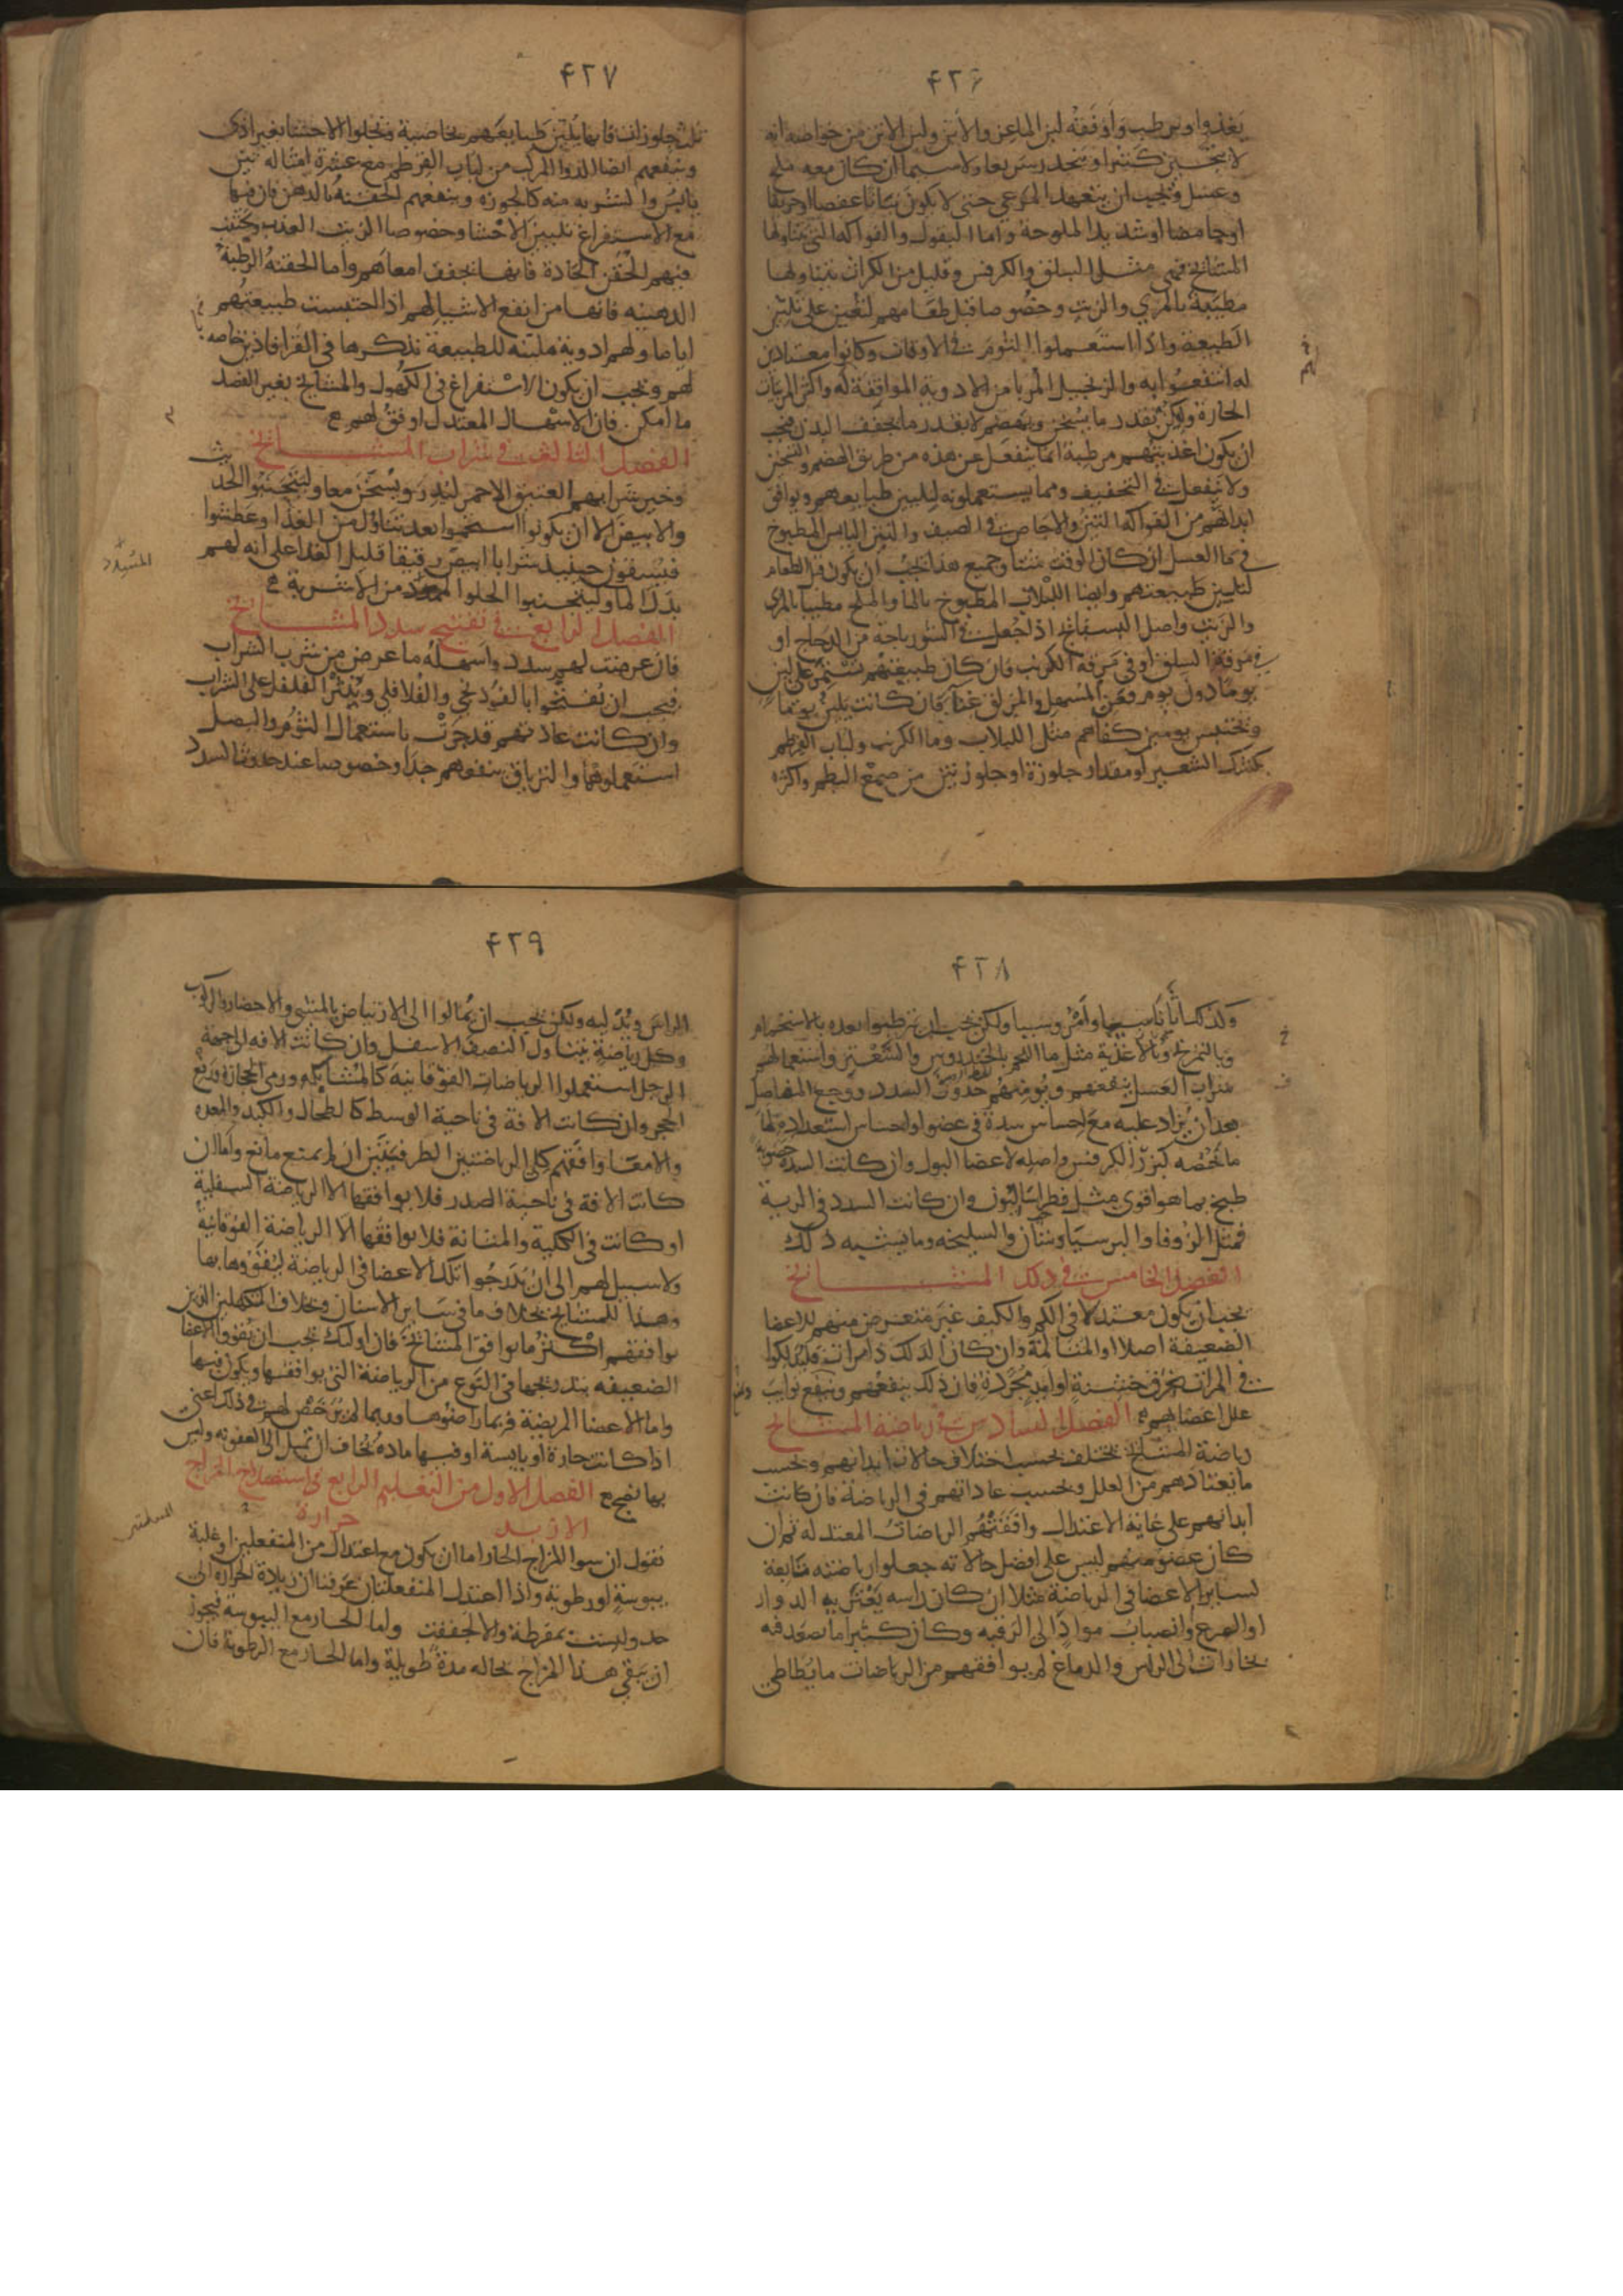 ۴۲۶
يغذوا ويرطب وأوفقه لبن الماعز والاتن ولبن الاتن من خواصه انه
لا يتجبن كثيرا وينحدر سريعا ولا سيما ان كان معه ملح
وعسل ويجب ان يتعهد المرعى حتى لا يكون نباتا عفصا او حريفا
او حامضا او شديد الملوحة واما البقول والفواكه التي يتناولها
المشايخ فهي مثل السلق والكرفس وقليل من الكراث يتناولها
مطيبة بالمري والزيت وخصوصا قبل طعامهم لتعين على تليين
الطبيعة واذا استعملوا الثوم في الاوقات وكانوا معتادين
له انتفعوا به والزنجبيل المربا من الادوية الموافقة له واكثر المربيات
الحارة وليكن بقدر ما يسخن ويهضم لا بقدر ما يجفف البدن فيجب
ان يكون اغذيتهم مرطبة انما ينفعل عن هذه من طريق الهضم والتسخين
ولا ينفعل في التجفيف ومما يستعملونه لتليين طبايعهم ويوافق
ابدانهم من الفواكه التين والاجاص في الصيف والتين اليابس المطبوخ
في ماء العسل ان كان الوقت شتا وجميع هذا يجب ان يكون قبل الطعام
لتليين طبيعتهم وايضا اللبلاب المطبوخ بالما والملح مطيبا بالمري
والزيت واصل البسفايج اذا جعل في الشورباجة من الدجاج او
في مرقة السلق او في مرقة الكرنب فان كان طبيعتهم تستمر على لين
يوما دون يوم فعن المسهل والمزلق غنا فان كانت تلين يوما
وتحتبس يومين كفاهم مثل اللبلاب وما الكرنب ولباب القرطم
بكشك الشعير او مقدار جلوزة او جلوزتين من صمغ البطم واكثره
۴۲۷
ثلث جلوزات فانها تلين طبايعهم بخاصية وتجلوا الاحشا بغير اذى
وينفعهم ايضا الدوا المركب من لباب القرطم مع عشرة امثاله تين
يابس والشربه منه كالجوزه وينفعهم الحقنة بالدهن فان فيها
مع الاستفراغ تليين الاحشا وخصوصا الزيت العذب ويجتنب
فيهم الحقن الحادة فانها تجفف امعاهم واما الحقنة الرطبة
الدهنيه فانها من انفع الاشيا لهم اذا احتبست طبيعتهم
اياما ولهم ادوية ملينه للطبيعة نذكرها في القراباذين خاصه
لهم ويجب ان يكون الاستفراغ في الكهول والمشايخ بغير الفصد
ما امكن فان الاسهال المعتدل اوفق لهم
الفصل الثالث في شراب المشايخ
وخير شرابهم العتيق الاحمر ليدر ويسخن معا وليتجنبوا الحديث
والابيض الا ان يكونوا استحموا بعد تناول من الغذا وعطشوا
فيسقون حينيذ شرابا ابيض رقيقا قليل الغذا على انه لهم
بدل الما وليتجنبوا الحلو المسدد من الاشربة
المسدد
الفصل الرابع في تفتيح سدد المشايخ
فان عرضت لهم سدد واسهله ما عرض من شرب الشراب
فيجب ان يفتحوا بالفودنجي والفلافلي ويذر الفلفل على الشراب
وان كانت عادتهم قد جرت باستعمال الثوم والبصل
استعملوهما والترياق ينفعهم جدا وخصوصا عند حدوث السدد
۴۲۸
وكذلك اثاناسيا وامروسيا ولكن يجب ان يرطبوا بعده بالاستحمام
وبالتمرخ وبالاغذية مثل ما اللحم بالخندروس والشعير واستعمالهم
شراب العسل ينفعهم ويؤمنهم حدوث السدد ووجع المفاصل
بعد ان يزاد عليه مع احساس سدة في عضو او احساس استعداد لها
ما يخصه كبزر الكرفس واصله لاعضا البول وان كانت السدة حصوية
طبخ بما هو اقوى مثل فطراساليون وان كانت السدد في الرية
فمثل الزوفا والبرسياوشان والسليخه وما يشبه ذلك
الفصل الخامس في دلك المشايخ
يجب ان يكون معتدلا في الكم والكيف غير متعرض منهم للاعضا
الضعيفة اصلا او المثانة وان كان الدلك ذا مرات فليدلكوا
في المرات بخرق خشنة او ايد مجردة فان ذلك ينفعهم ويمنع نوايب
علل اعضايهم الفصل السادس في رياضة المشايخ
رياضة المشايخ تختلف بحسب اختلاف حالات ابدانهم وبحسب
ما يعتادهم من العلل وبحسب عاداتهم في الرياضة فان كانت
ابدانهم على غاية الاعتدال وافقتهم الرياضات المعتدله ثم ان
كان عضو منهم ليس على افضل حالاته جعلوا رياضته تابعة
لساير الاعضا في الرياضة مثلا ان كان راسه يعتريه الدوار
او الصرع وانصباب مواد الى الرقبه وكان كثيرا ما يصعد فيه
بخارات الى الراس والدماغ لم يوافقهم من الرياضات ما يطاطي
۴۲۹
الراس ويدليه ولكن يجب ان يمالوا الى الارتياض بالمشي والاحضار والركوب
وكل رياضة يتناول النصف الاسفل وان كانت الافه الى جهة
الرجل استعملوا الرياضات الفوقانيه كالمشايله ورمي الحجارة ورفع
الحجر وان كانت الافة في ناحية الوسط كالطحال والكبد والمعده
والامعا وافقتهم كلى الرياضتين الطرفيتين ان لم يمنع مانع واما ان
كانت الافة في ناحية الصدر فلا يوافقها الا الرياضة السفلية
او كانت في الكلية والمثانة فلا يوافقها الا الرياضة الفوقانية
ولا سبيل لهم الى ان يدرجوا تلك الاعضا في الرياضة ليقووها بها
وهذا للمشايخ بخلاف ما في ساير الاسنان وبخلاف المكتهلين الذين
يوافقهم اكثر ما يوافق المشايخ فان اوليك يجب ان يقووا الاعضا
الضعيفه بتدريجها في النوع من الرياضة التي يوافقها ويكون فيها
واما الاعضا المريضة فربما راضوها وربما لم يرخص لهم في ذلك اعني
اذا كانت حارة او يابسة او فيها مادة يخاف ان تميل الى العفونه وليس
بها نضج الفصل الاول من التعليم الرابع في استصلاح المزاج
الازيد حرارة
نقول ان سوا المزاج الحار اما ان يكون مع اعتدال من المنفعلين او غلبة
يبوسة او رطوبة واذا اعتدلت المنفعلتان عرفنا ان زيادة الحرارة الى
حد وليست بمفرطة والا لجففت واما الحار مع اليبوسة فيجوز
ان يبقى هذا المزاج بحاله مدة طويلة واما الحار مع الرطوبة فان